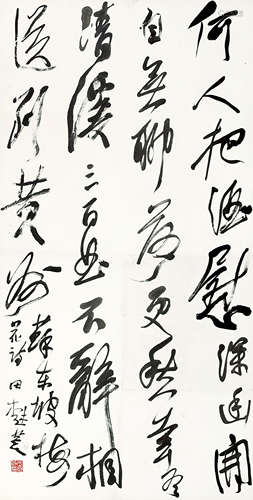 何人把酒慰深幽開
自無聊落更愁幸有
清溪三百曲不辭相
送到黄州
蘇東坡梅
花詩 田樹萇